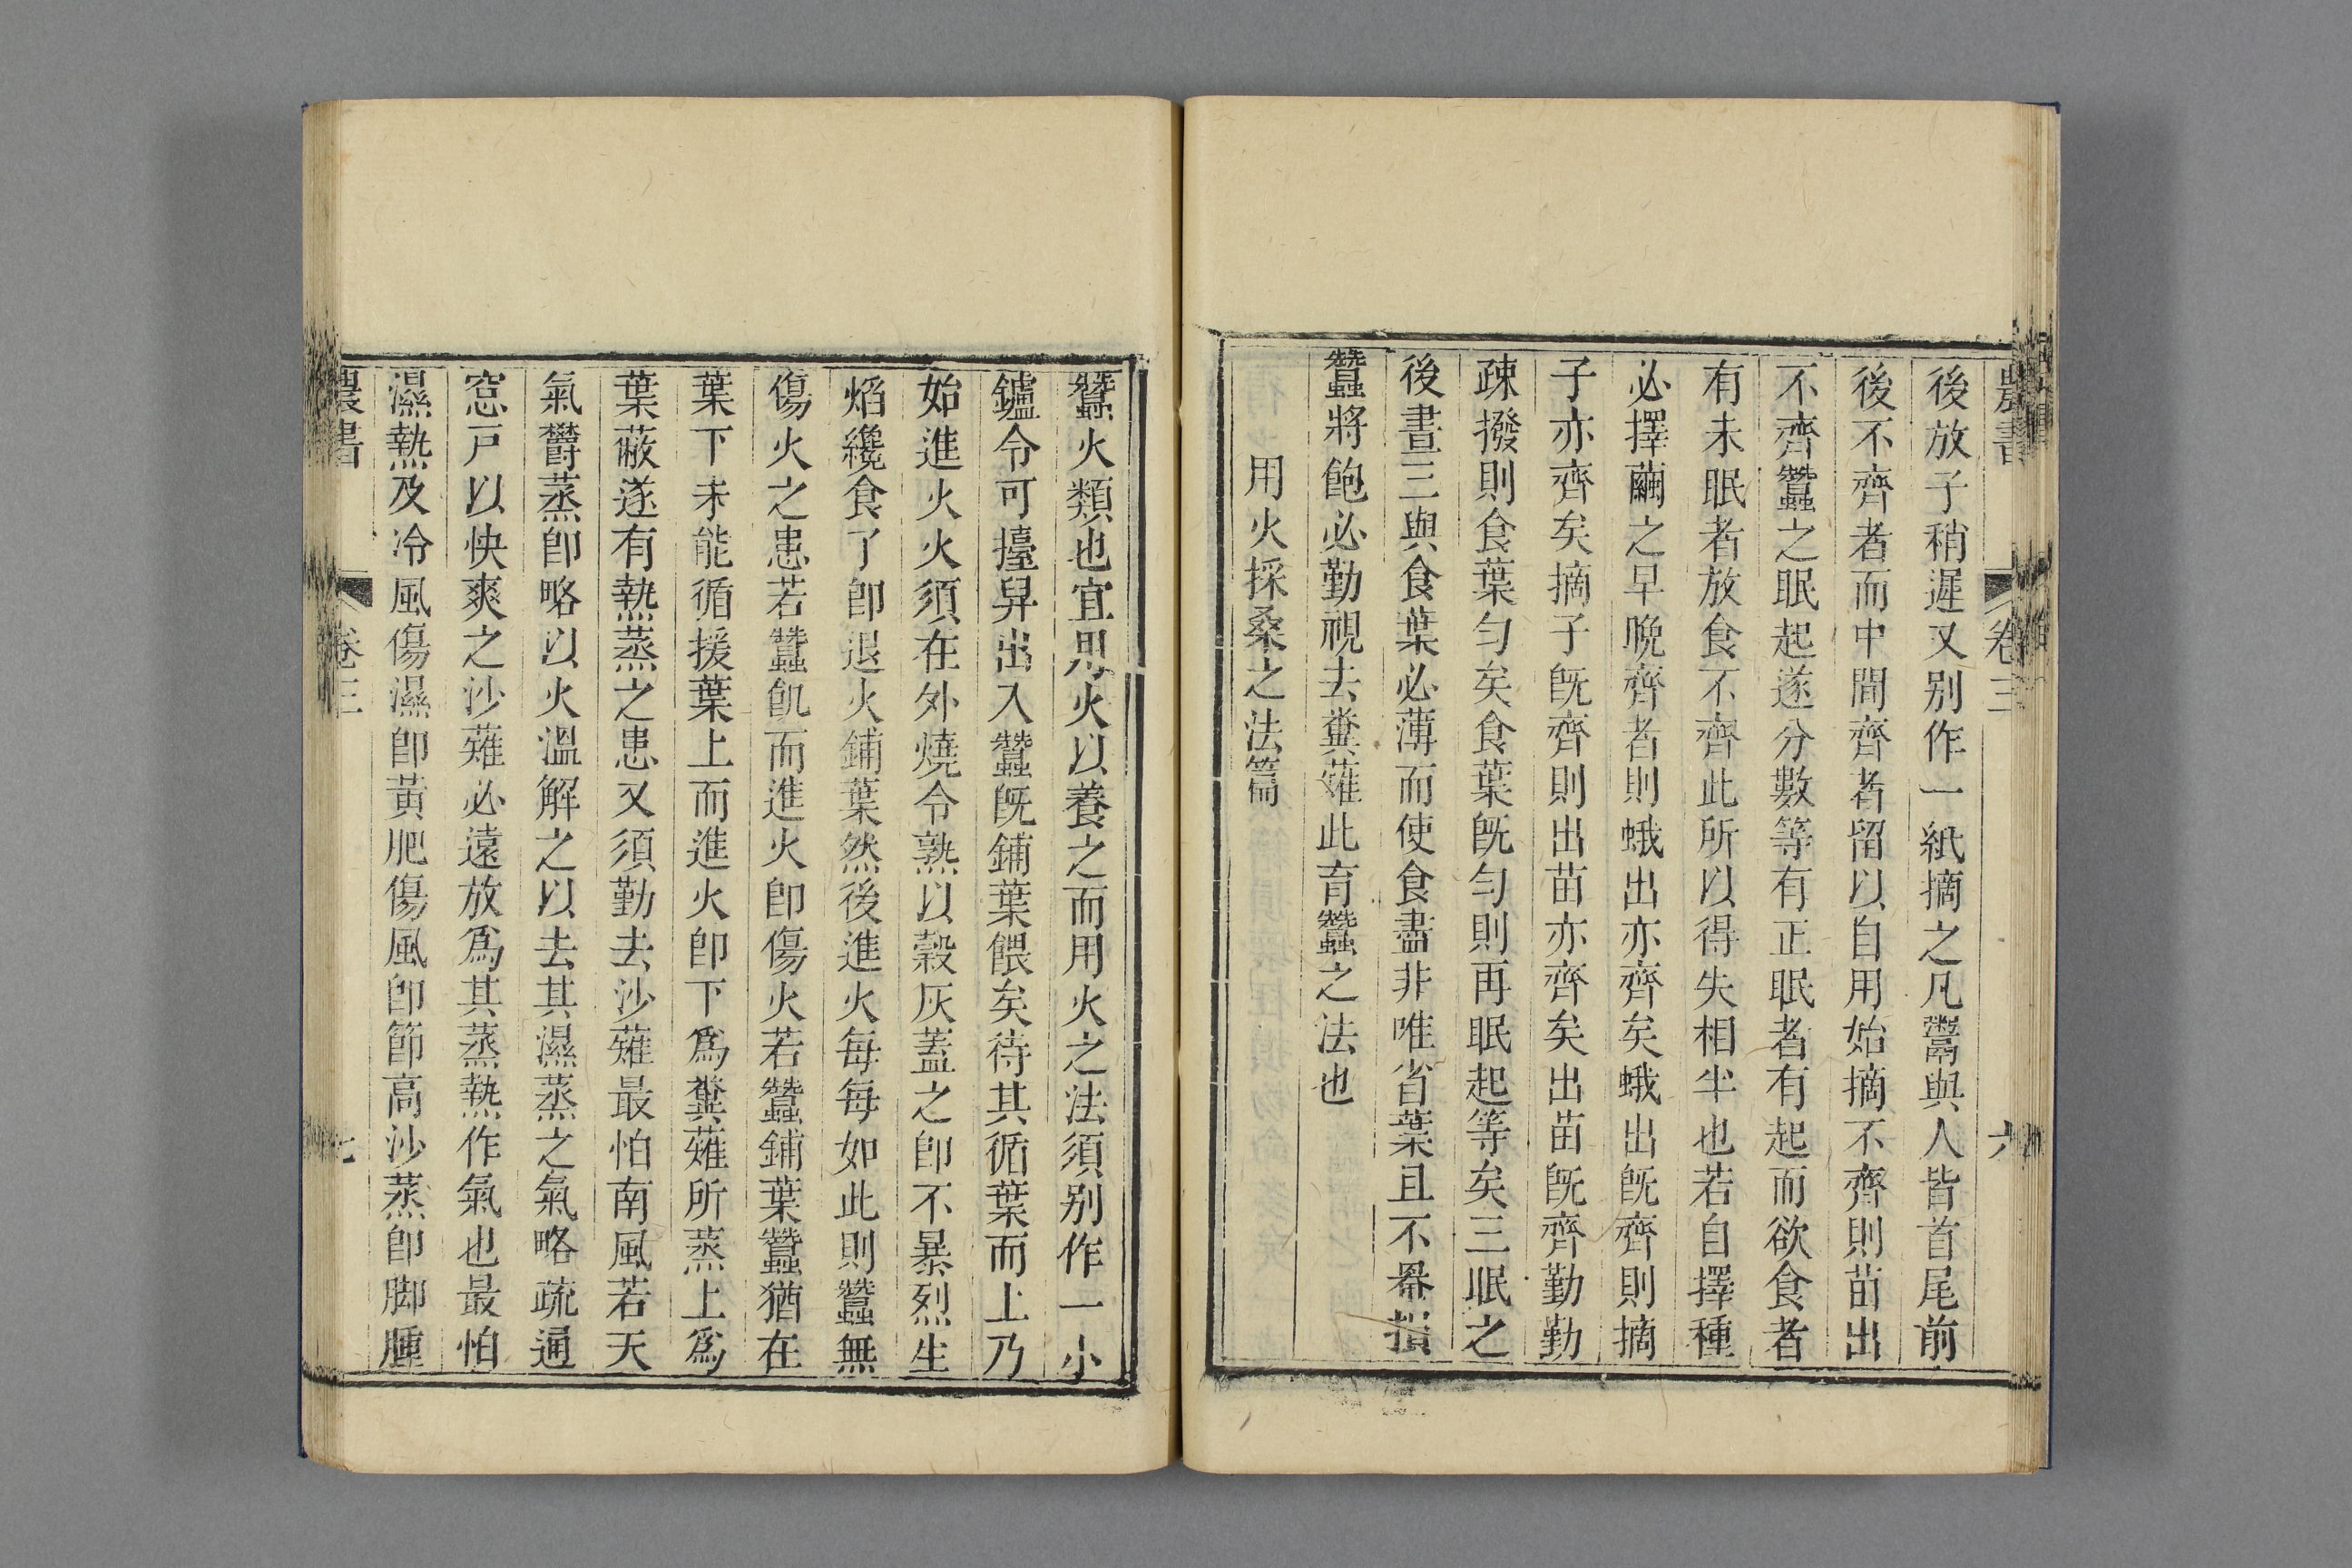 農書 卷三 六
後放子稍遲又别作一紙摘之凡鬻與人皆首尾前
後不齊者而中間齊者留以自用始摘不齊則苗出
不齊蠶之眠起遂分數等有正眠者有起而欲食者
有未眠者放食不齊此所以得失相半也若自擇種
必擇繭之早晚齊者則蛾出亦齊矣蛾出旣齊則摘
子亦齊矣摘子旣齊則出苗亦齊矣出苗旣齊勤勤
疎撥則食葉勻矣食葉旣勻則再眠起等矣三眠之
後晝三與食葉必薄而使食盡非唯省葉且不罨損
蠶將飽必勤視去糞薙此育蠶之法也
用火採桑之法篇
蠶火類也宜用火以養之而用火之法須别作一小
鑪令可擡舁出入蠶旣鋪葉餵矣待其循葉而上乃
始進火火須在外燒令熟以穀灰蓋之卽不暴烈生
焰纔食了卽退火鋪葉然後進火每每如此則蠶無
傷火之患若蠶飢而進火卽傷火若蠶鋪葉蠶猶在
葉下未能循援葉上而進火卽下爲糞薙所蒸上爲
葉蔽遂有熱蒸之患又須勤去沙薙最怕南風若天
氣鬱蒸卽略以火溫解之以去其濕蒸之氣略疏通
窓戸以快爽之沙薙必遠放爲其蒸熱作氣也最怕
濕熱及冷風傷濕卽黃肥傷風卽節高沙蒸卽脚腫
農書 卷三 七